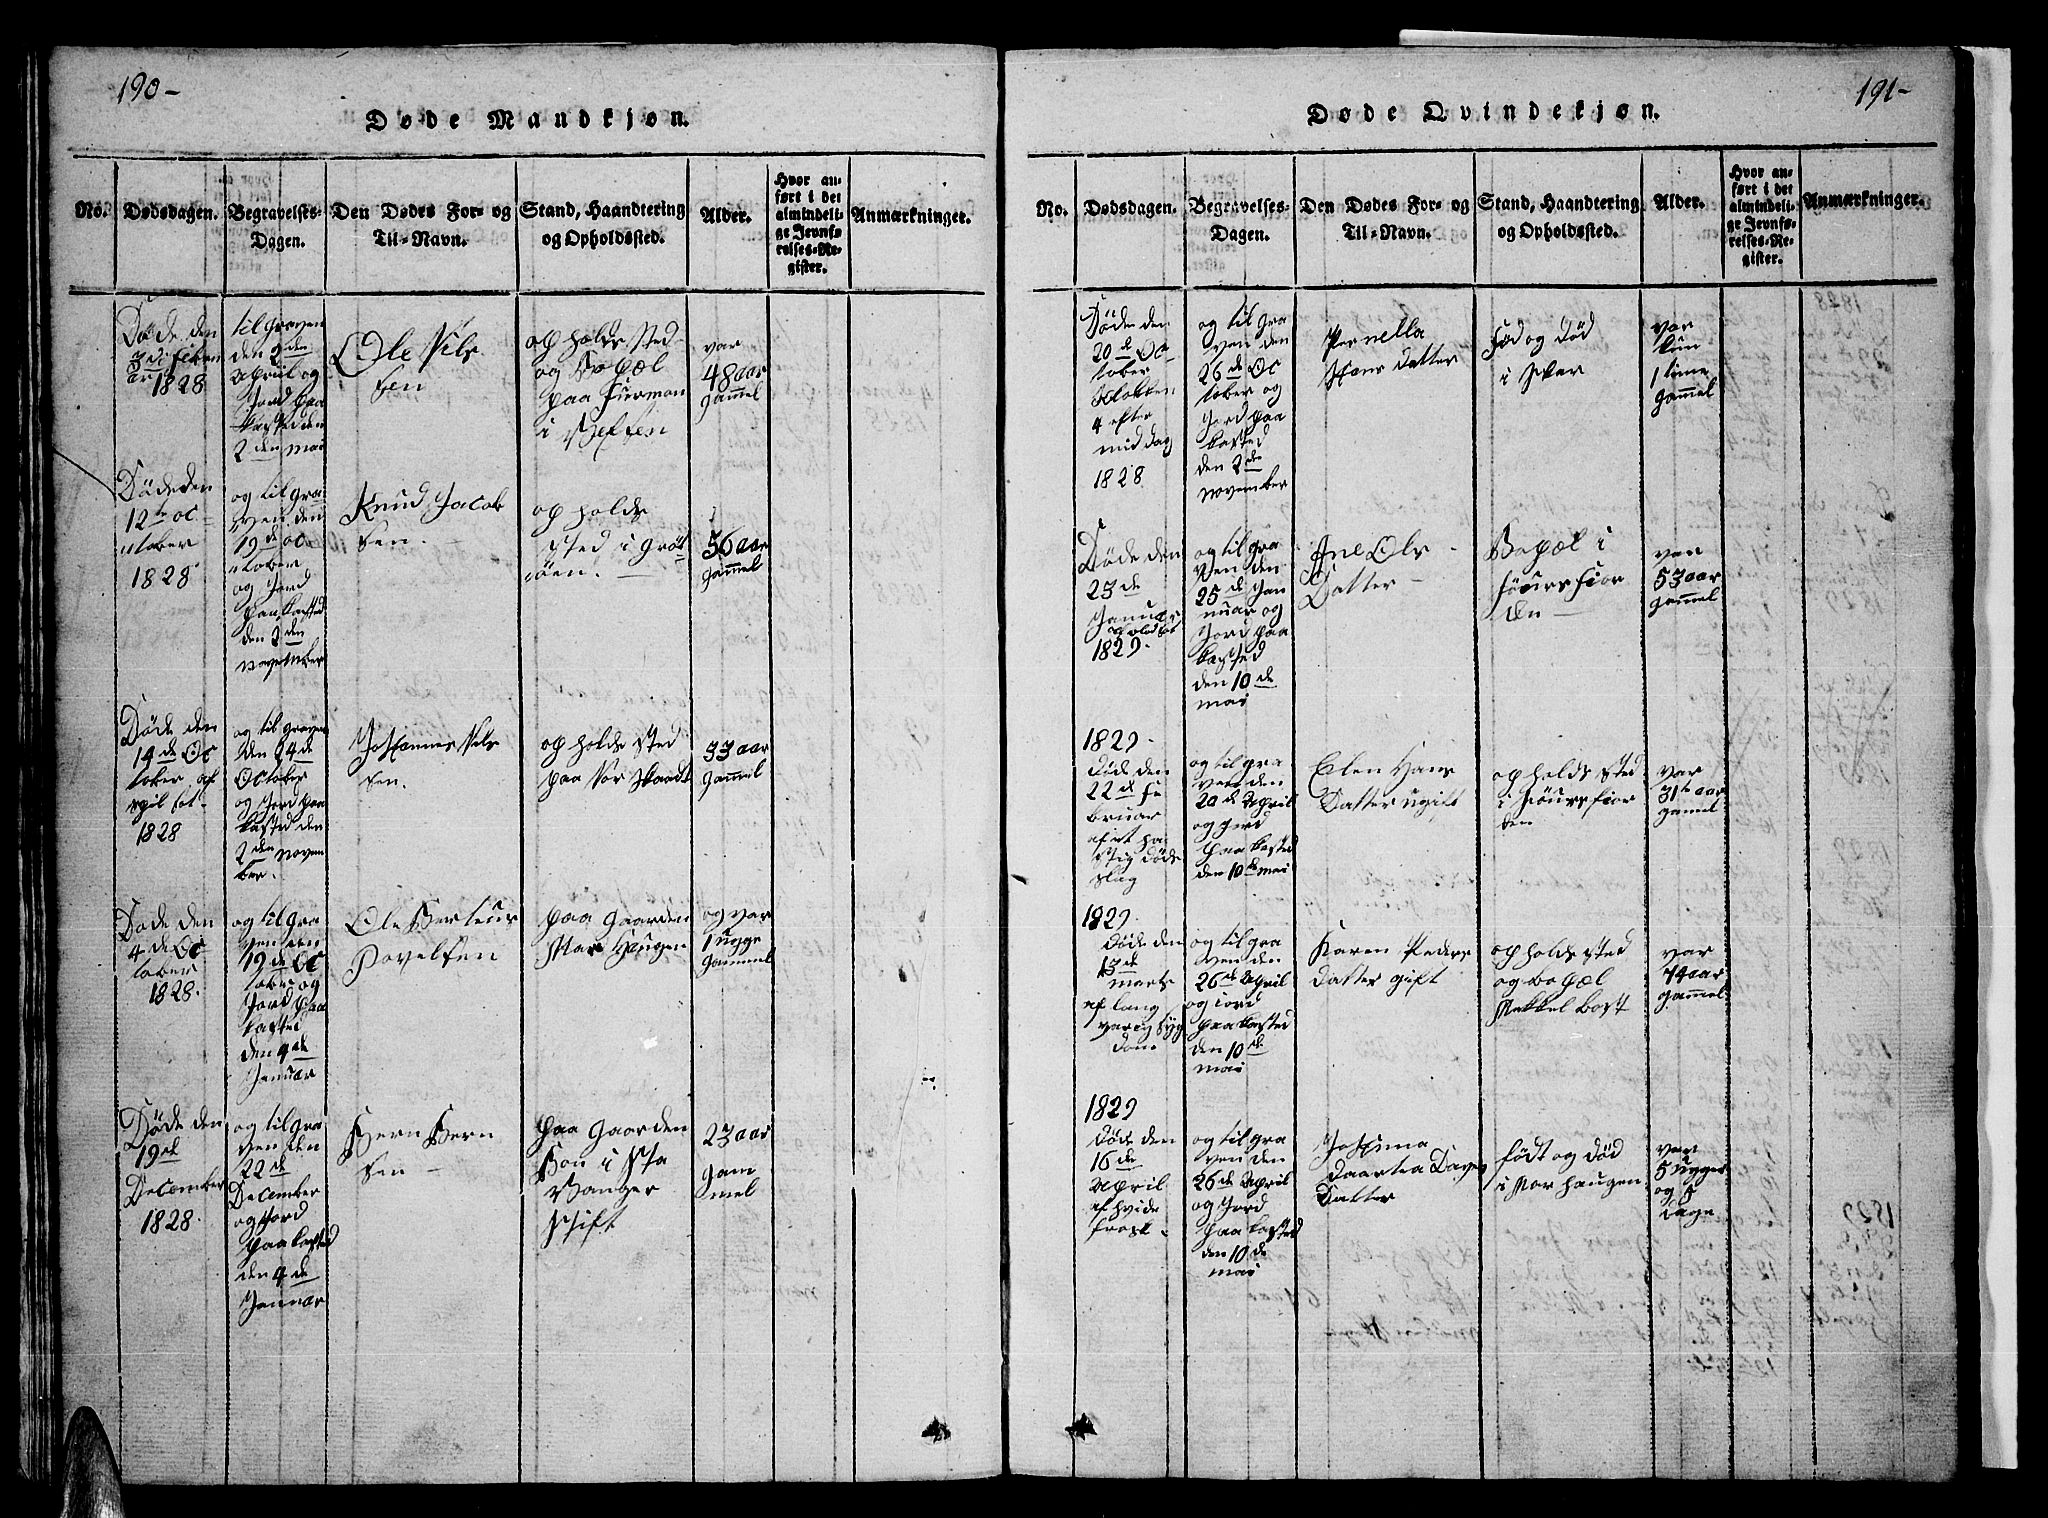 190-
Døde Mandkjøn.
No.
Dødsdagen.
Begravelses-
Dagen.
Den Dødes For- og
Til-Navn.
Stand, Haandtering
og Opholdssted.
Alder.
Hvor an-
ført i det
almindeli-
ge Jevnfø-
relses-Re-
gister.
Anmærkninger.
Døde den
3de
1828
til graven
den 2den
April og
Jord paa
kasted den
2den mai
Ole Nils
sen
opholds sted
og Bopæl
paa
i
var
48 aar
gammel
Døde den
12te oc
tober
1828
og til gra
ven den
19de oc
tober
og Jord
paa kasted
den 2den
november
Knud Jacob
sen.
opholds
sted i Grøt
øen.
56 aar
gammel
Døde den
14de Oc
tober af
1828
og til graven
den 24de
October
og Jord paa
kasted den
2den novem
ber.
Johannes Nils
sen.
opholds sted
paa
33 aar
gammel
Døde den
4de Oc
tober
1828.
og til gra
ven den
19de Oc
tober og
Jord paa
kasted
den 4de
Januar
Ole
Povelsen
paa gaarden
Mar Haugen
og var
1 ugge
gammel
Døde den
19de
December
1828.
og til gra
ven den
22de
December
og Jord
paa kasted
den 4de
Januar
Bern Bern
sen
paa gaarden
i Sta
Vanger
Stift
23 aar
gam
mel
191-
Døde Qvindekjøn.
No.
Dødsdagen.
Begravelses-
Dagen.
Den Dødes For- og
Til-Navn.
Stand, Haandtering
og Opholdssted.
Alder.
Hvor an-
ført i det
almindeli-
ge Jevnfø-
relses-Re-
gister.
Anmærkninger.
Døde den
20de Oc
tober
Klokken
4 efter
middag
1828
og til gra
ven den
26de Oc
tober og
Jord paa
kasted
den 2de
november
Pernella
Hans datter
Fød og Død
i
var
kun
1 time
gammel
Døde den
23de
Januar
1829.
og til gra
ven den
25de Jan
nuar og
Jord paa
kasted
den 10de
mai
Ane Ols
Datter
Bopæl i
den
var
53 aar
gammel
1829.
Døde den
22de Fe
bruar
af et ha
stig døds
slag
og til gra
ven den
20de April
og Jord
paa kasted
den 10de mai
Elen Hans
Datter ugift
opholds sted
i
den
var
31te aar
gamel
1829.
Døde den
13de
marts
af lang
varig syg
dom
og til gra
ven den
26de April
og iord
paa kasted
den 10de
mai
Karen Peders
datter gift
opholds sted
og bopæl
var
74 aar
gammel
1829
Døde den
16de
April
af hvide
frost.
og til gra
ven den
26de April
og Jord
paa kasted
den 10de
mai
Johanna
Daartea
Datter
født og død
i Mar haugen
var
5 ugger
og 5
Dage